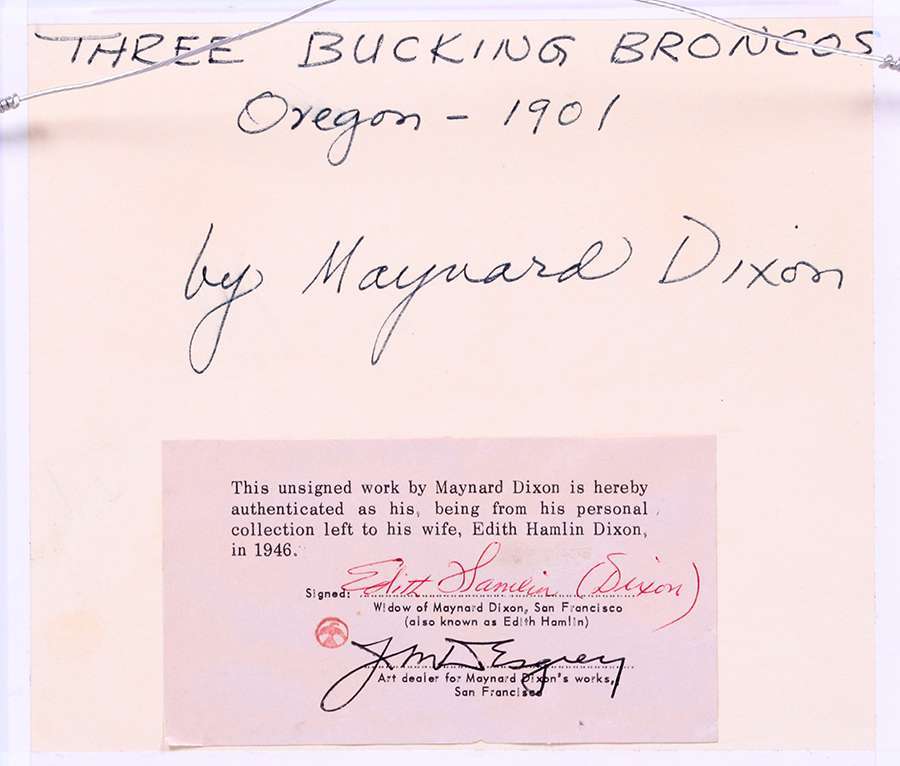 THREE BUCKING BRONCOS
Oregon - 1901
by Maynard Dixon
This unsigned work by Maynard Dixon is hereby
authenticated as his, being from his personal
collection left to his wife, Edith Hamlin Dixon,
in 1946.
Signed: Edith Hamlin (Dixon)
Widow of Maynard Dixon, San Francisco
(also known as Edith Hamlin)
Art dealer for Maynard Dixon's works,
San Francisco